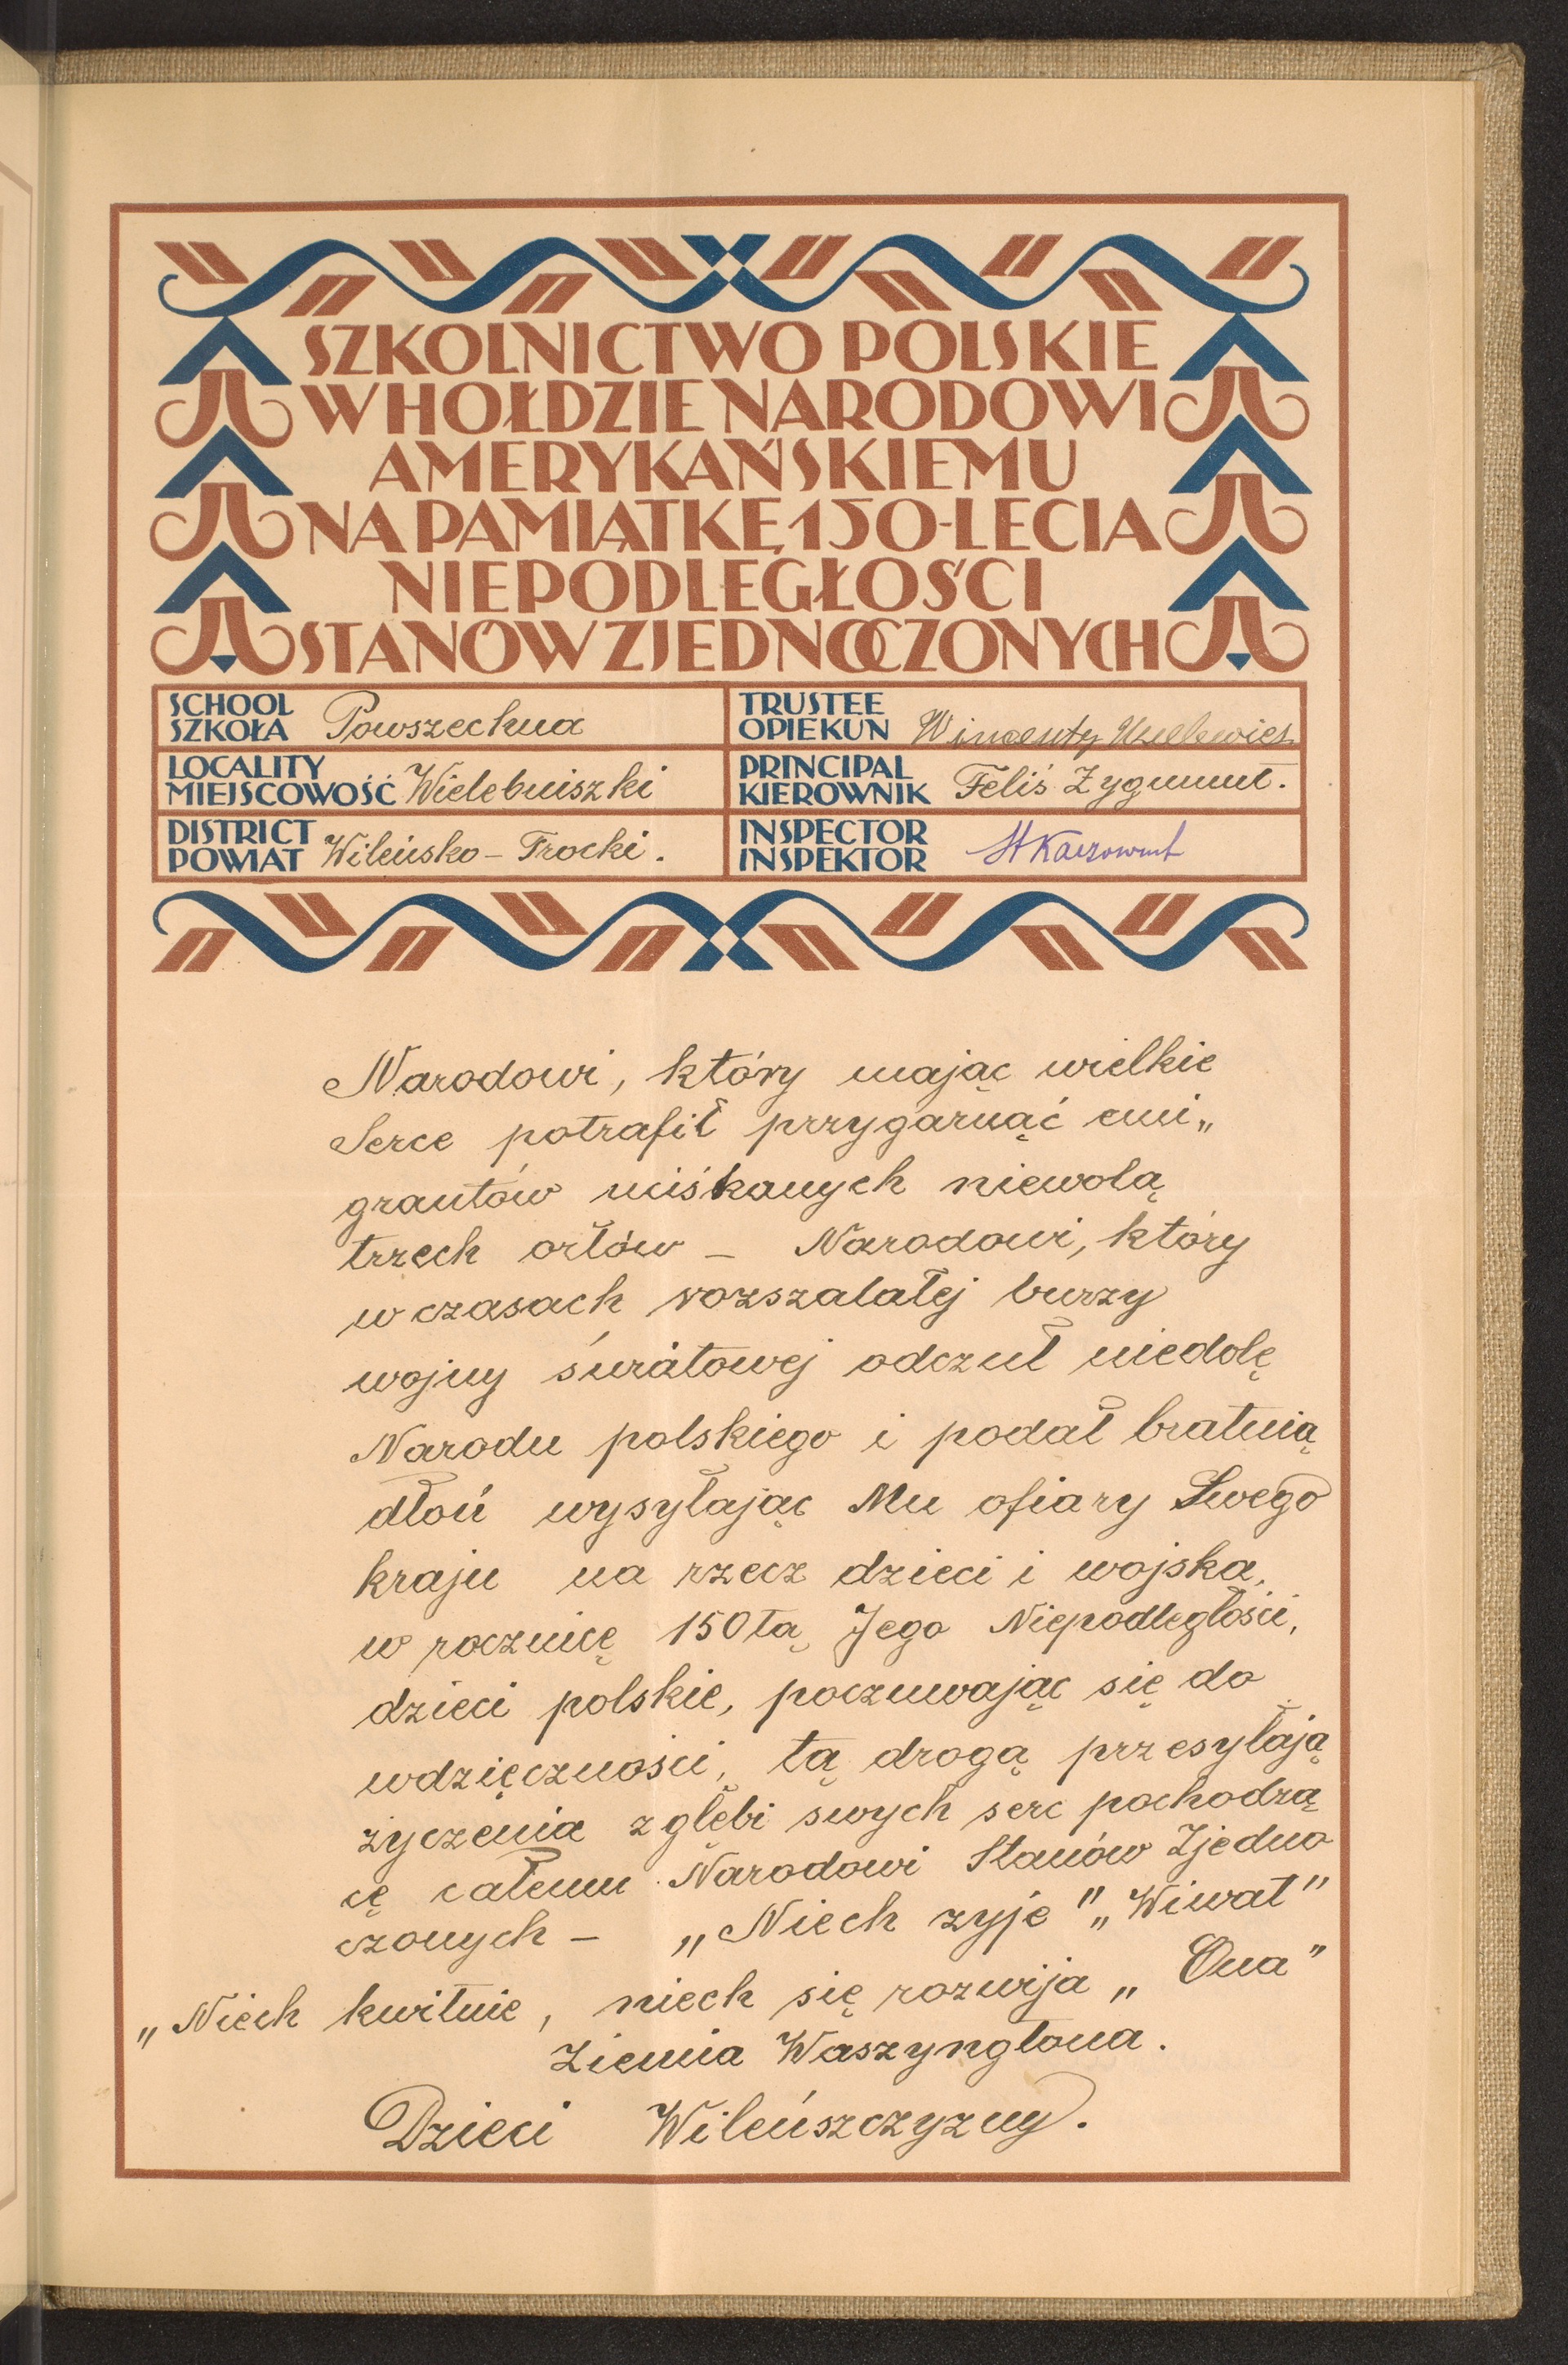 SZKOLNICTWO POLSKIE
W HOŁDZIE NARODOWI
AMERYKAŃSKIEMU
NA PAMIĄTKĘ 150-LECIA
NIEPODLEGŁOŚCI
STANÓW ZJEDNOCZONYCH
SCHOOL
SZKOŁA Powszechna
TRUSTEE
OPIEKUN Wincenty
LOCALITY
MIEJSCOWOŚĆ Wielebniszki
PRINCIPAL
KIEROWNIK Feliś Zygmunt.
DISTRICT
POWIAT Wileńsko - Trocki.
INSPECTOR
INSPEKTOR
Narodowi, który mając wielkie
Serce potrafił przygarnąć emi„
grantów uciśkanych niewolą
trzech orłów - Narodowi, który
w czasach rozszalałej burzy
wojny światowej odczuł niedolę
Narodu polskiego i podał bratnią
dłoń wysyłając Mu ofiary Swego
kraju na rzecz dzieci i wojska,
w rocznicę 150tą Jego Niepodległości,
dzieci polskie, poczuwając się do
wdzięczności, tą drogą przesyłają
życzenia z głębi swych serc pochodzą
cę całemu Narodowi Stanów Zjedno
czonych - „Niech żyje" „Wiwat"
„Niech kwitnie, niech się rozwija „Ona"
Ziemia Waszyngtona.
Dzieci Wileńszczyzny.